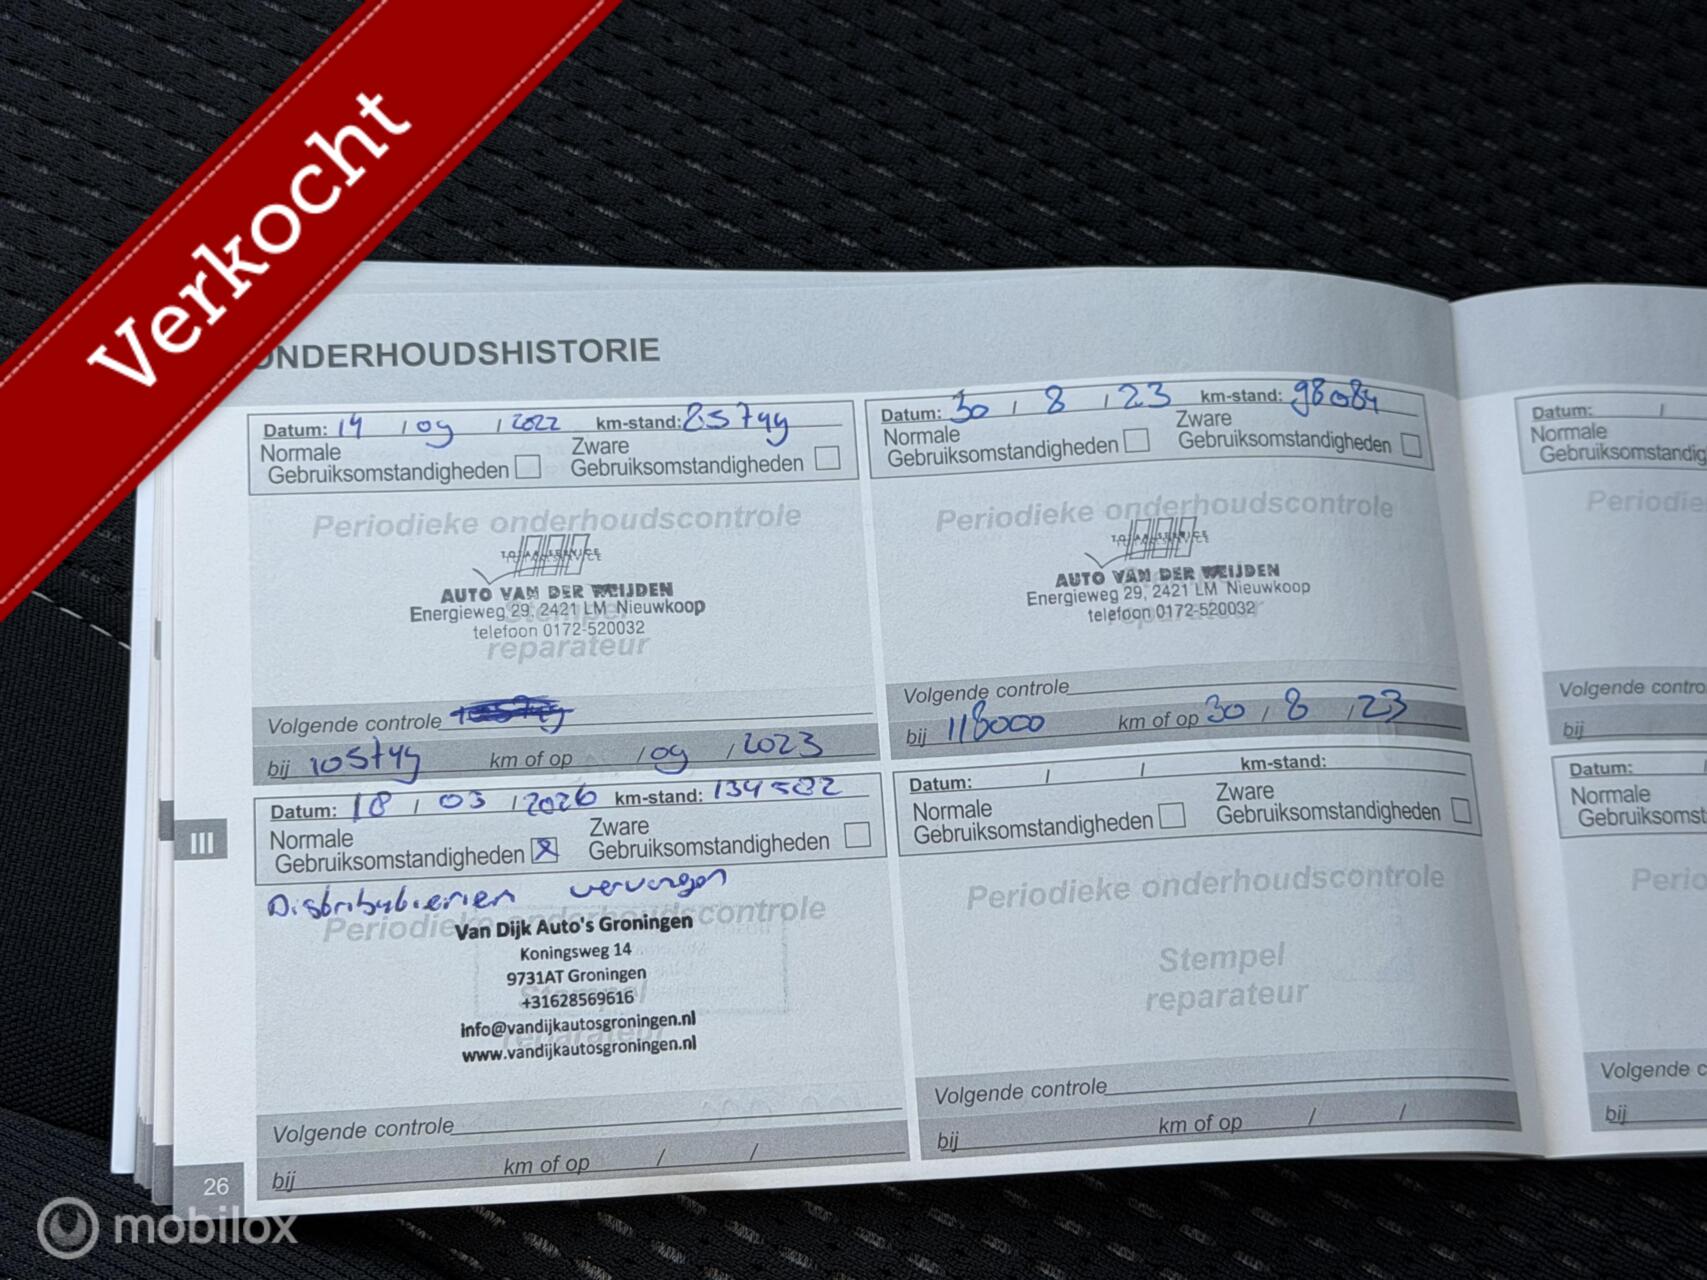 Verkocht
ONDERHOUDSHISTORIE
Datum: 14 / 09 / 2022 km-stand: 85799
Normale
Gebruiksomstandigheden
Zware
Gebruiksomstandigheden
Periodieke onderhoudscontrole
TOTAALSERVICE
AUTO VAN DER WEIJDEN
Energieweg 29, 2421 LM Nieuwkoop
telefoon 0172-520032
Stempel
reparateur
Volgende controle
bij 105799 km of op / 09 / 2023
Datum: 30 / 8 / 23 km-stand: 98084
Normale
Gebruiksomstandigheden
Zware
Gebruiksomstandigheden
Periodieke onderhoudscontrole
TOTAALSERVICE
AUTO VAN DER WEIJDEN
Energieweg 29, 2421 LM Nieuwkoop
telefoon 0172-520032
reparateur
Volgende controle
bij 118000 km of op 30 / 8 / 23
III
Datum: 18 / 03 / 2026 km-stand: 134582
Normale
Gebruiksomstandigheden
Zware
Gebruiksomstandigheden
Distributieriem vervangen
Periodieke onderhoudscontrole
Van Dijk Auto's Groningen
Koningsweg 14
9731AT Groningen
+31628569616
info@vandijkautosgroningen.nl
www.vandijkautosgroningen.nl
Stempel
reparateur
Volgende controle
bij km of op / /
Datum: / / km-stand:
Normale
Gebruiksomstandigheden
Zware
Gebruiksomstandigheden
Periodieke onderhoudscontrole
Stempel
reparateur
Volgende controle
bij km of op / /
26
Datum: /
Normale
Gebruiksomstandig
Periodie
Volgende contro
bij
Datum:
Normale
Gebruiksomst
Perio
Volgende c
bij
mobilox